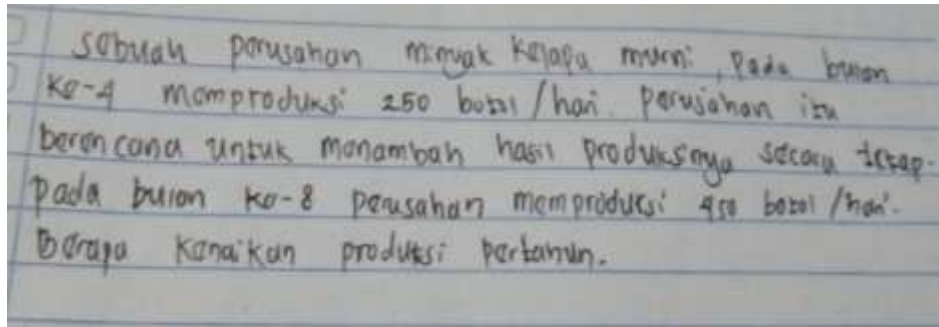 Sebuah perusahan minyak kelapa murni, Pada bulan
Ke-4 memproduksi 250 botol /hari. Perusahan itu
berencana untuk menambah hasil produksinya secara tetap.
Pada bulan ke-8 perusahan memproduksi 450 botol /hari.
Berapa kenaikan produksi pertahun.